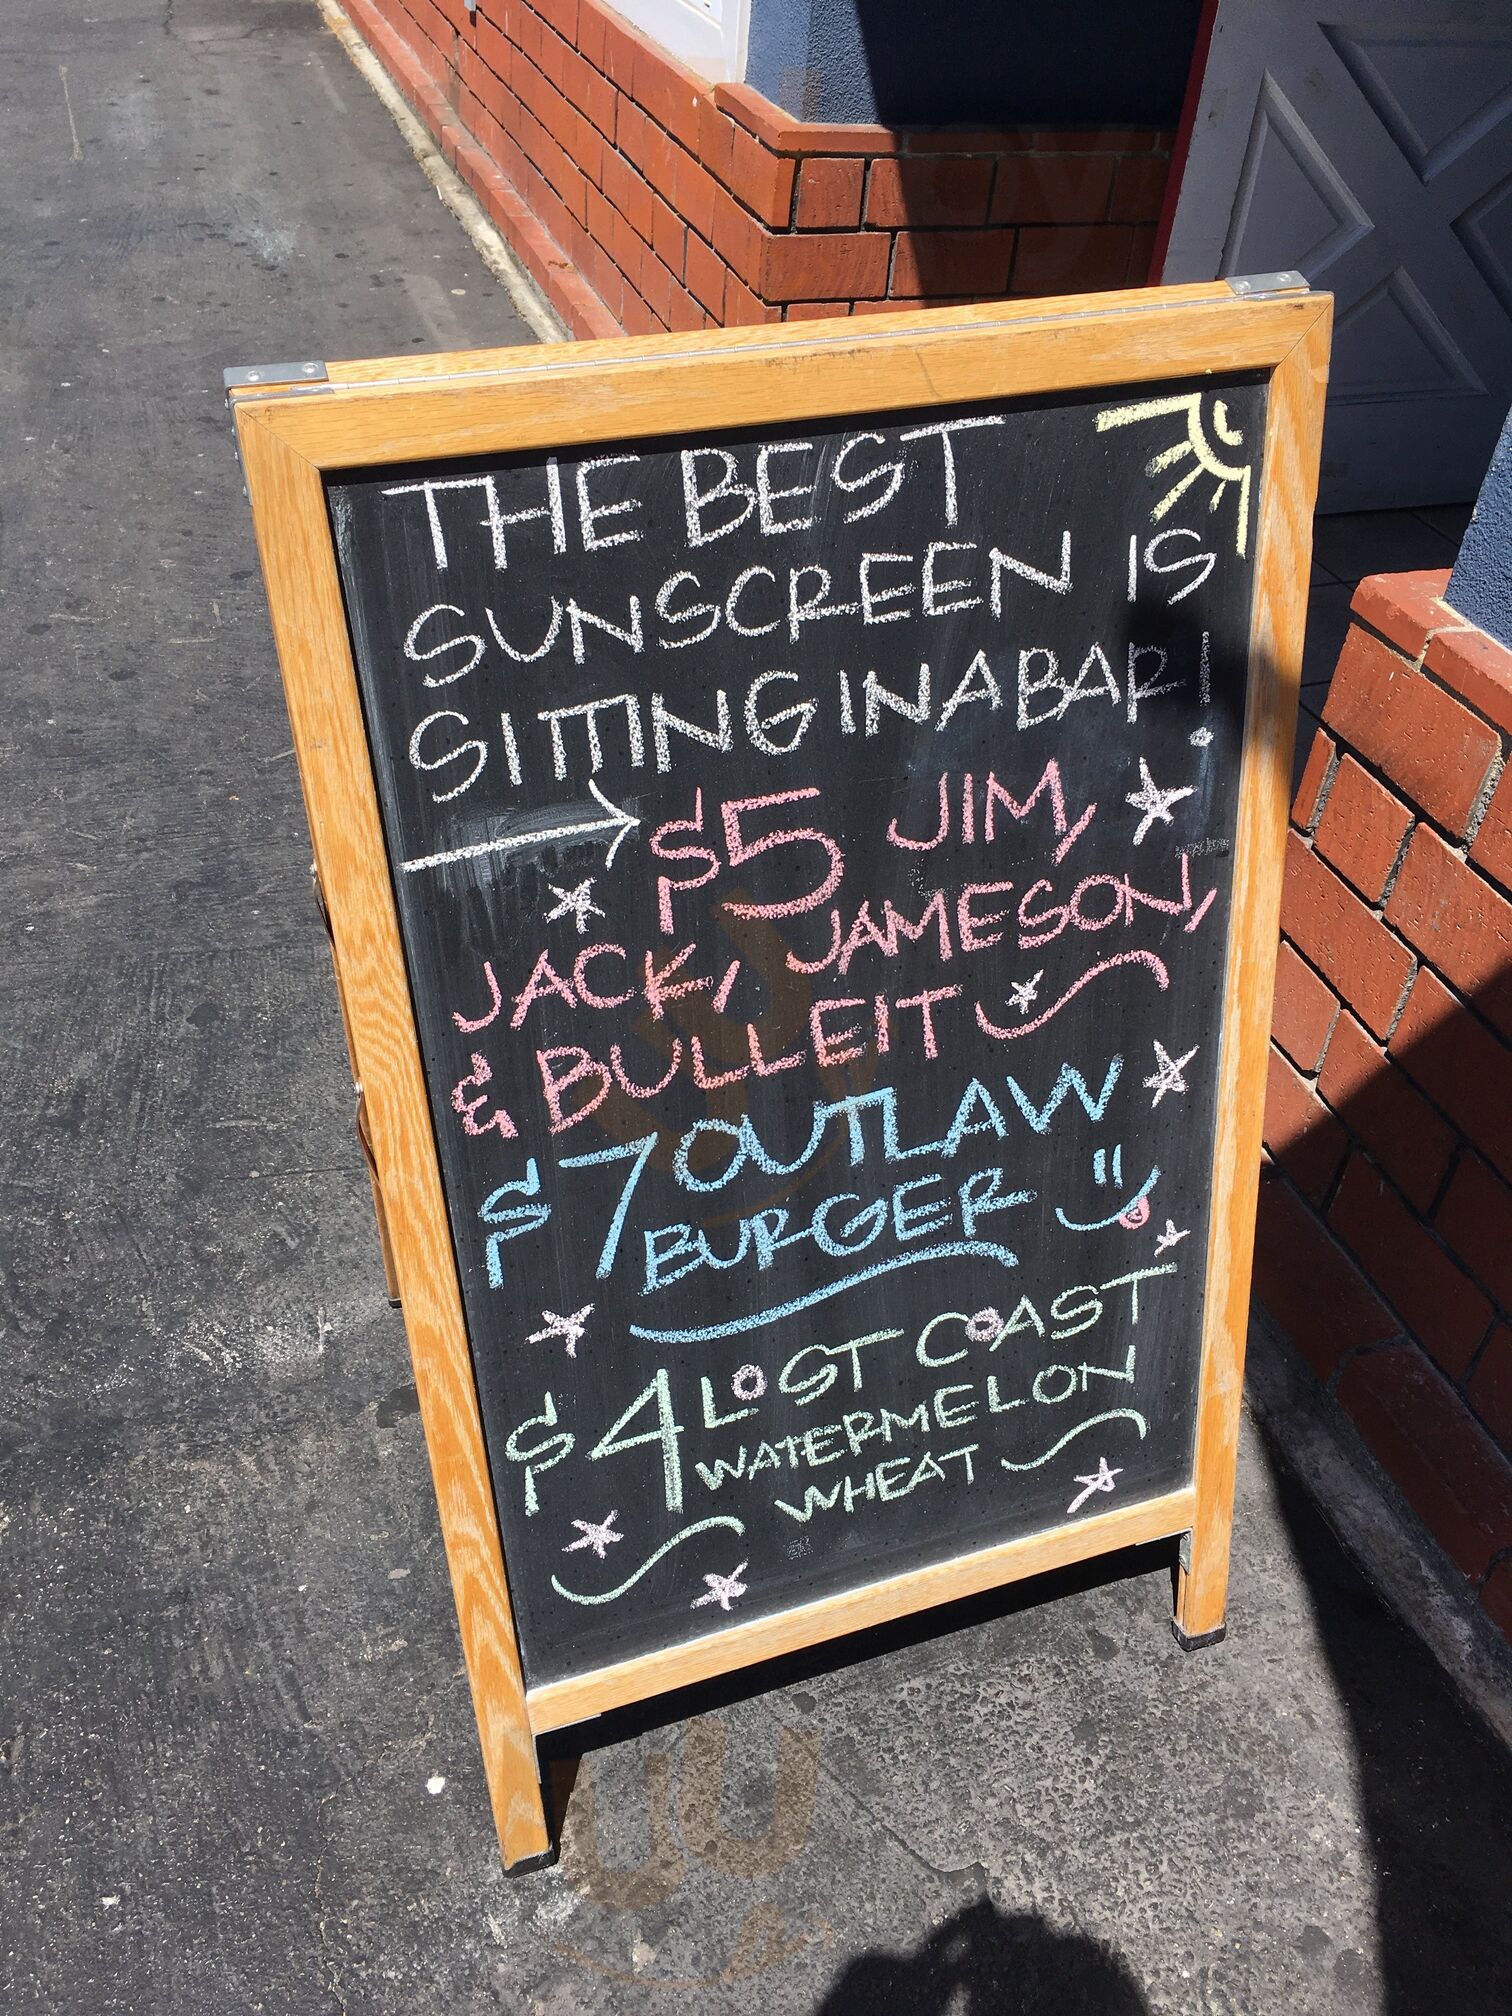 THE BEST
SUNSCREEN IS
SITTING IN A BAR!
$5 JIM,
JACK, JAMESON,
& BULLEIT
$7 OUTLAW
BURGER
$4 LOST COAST
WATERMELON
WHEAT